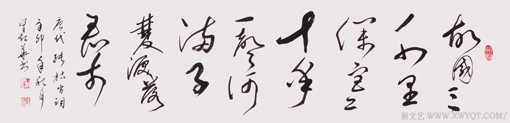 故國三
千里
深宮二
十年
一聲何
滿子
雙淚落
君前
唐代張祜宮詞
辛卯年秋月
華书
新文艺 WWW.XWYQT.COM